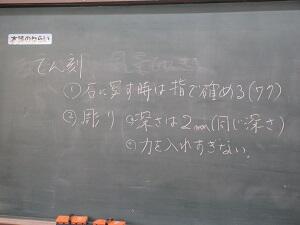 てん刻
①石に写す時は指で確める(ワク)
②彫り ⓐ深さは2mm(同じ深さ)
力を入れすぎない。